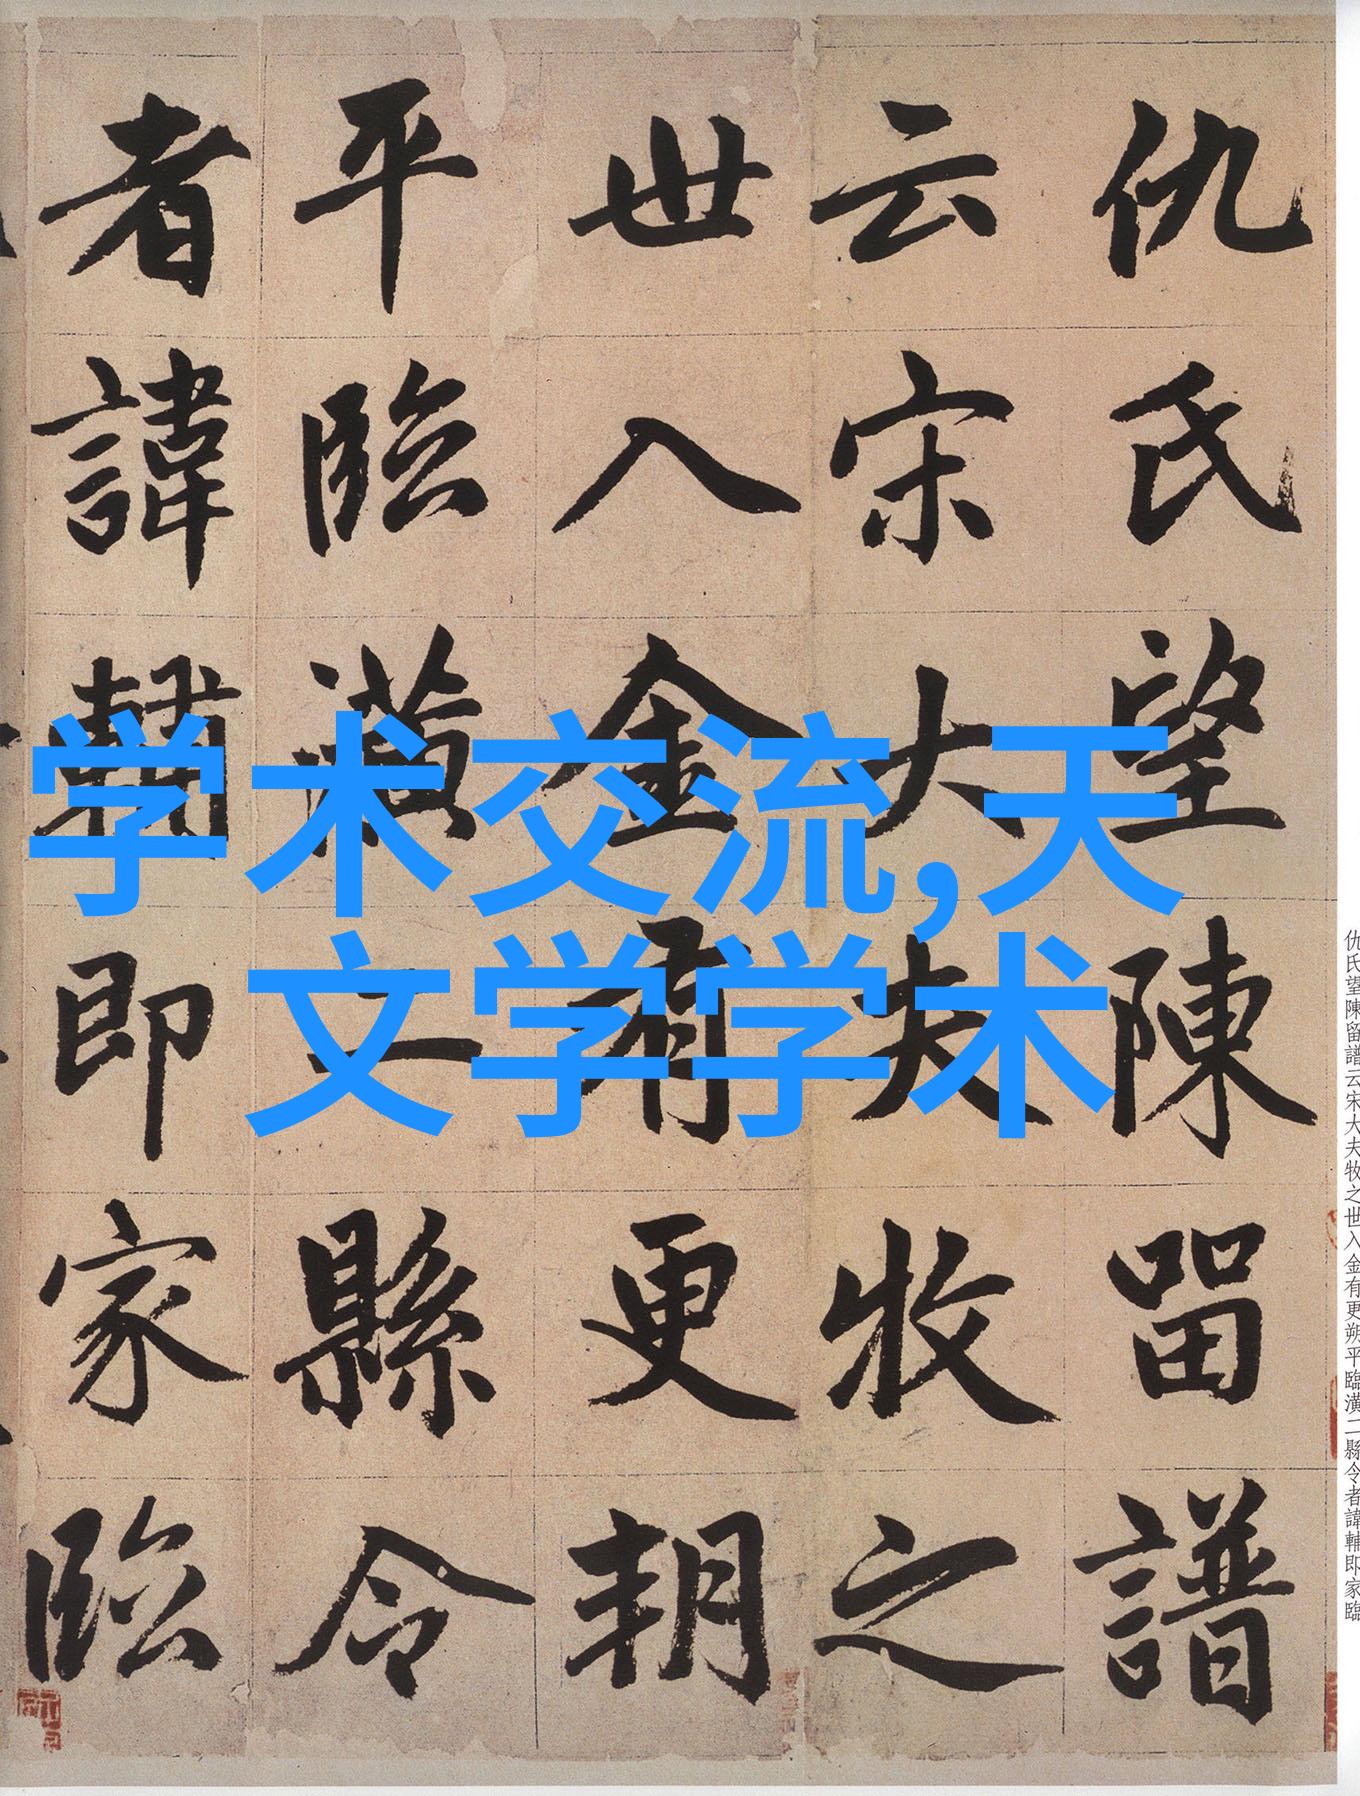 仇氏望陳留譜
云宋大夫牧之
世入金有更朔
平臨潢二縣令
者諱輔即家臨
学术交流,天
文学学术
仇氏望陳留譜云宋大夫牧之世入金有更朔平臨潢二縣令者諱輔即家臨